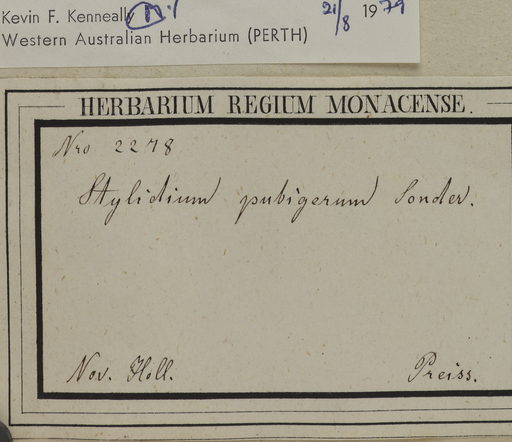 Kevin F. Kenneally
21/8 1979
Western Australian Herbarium (PERTH)
HERBARIUM REGIUM MONACENSE.
Nro 2278
Stylidium pubigerum Sonder.
Nov. Holl.
Preiss.